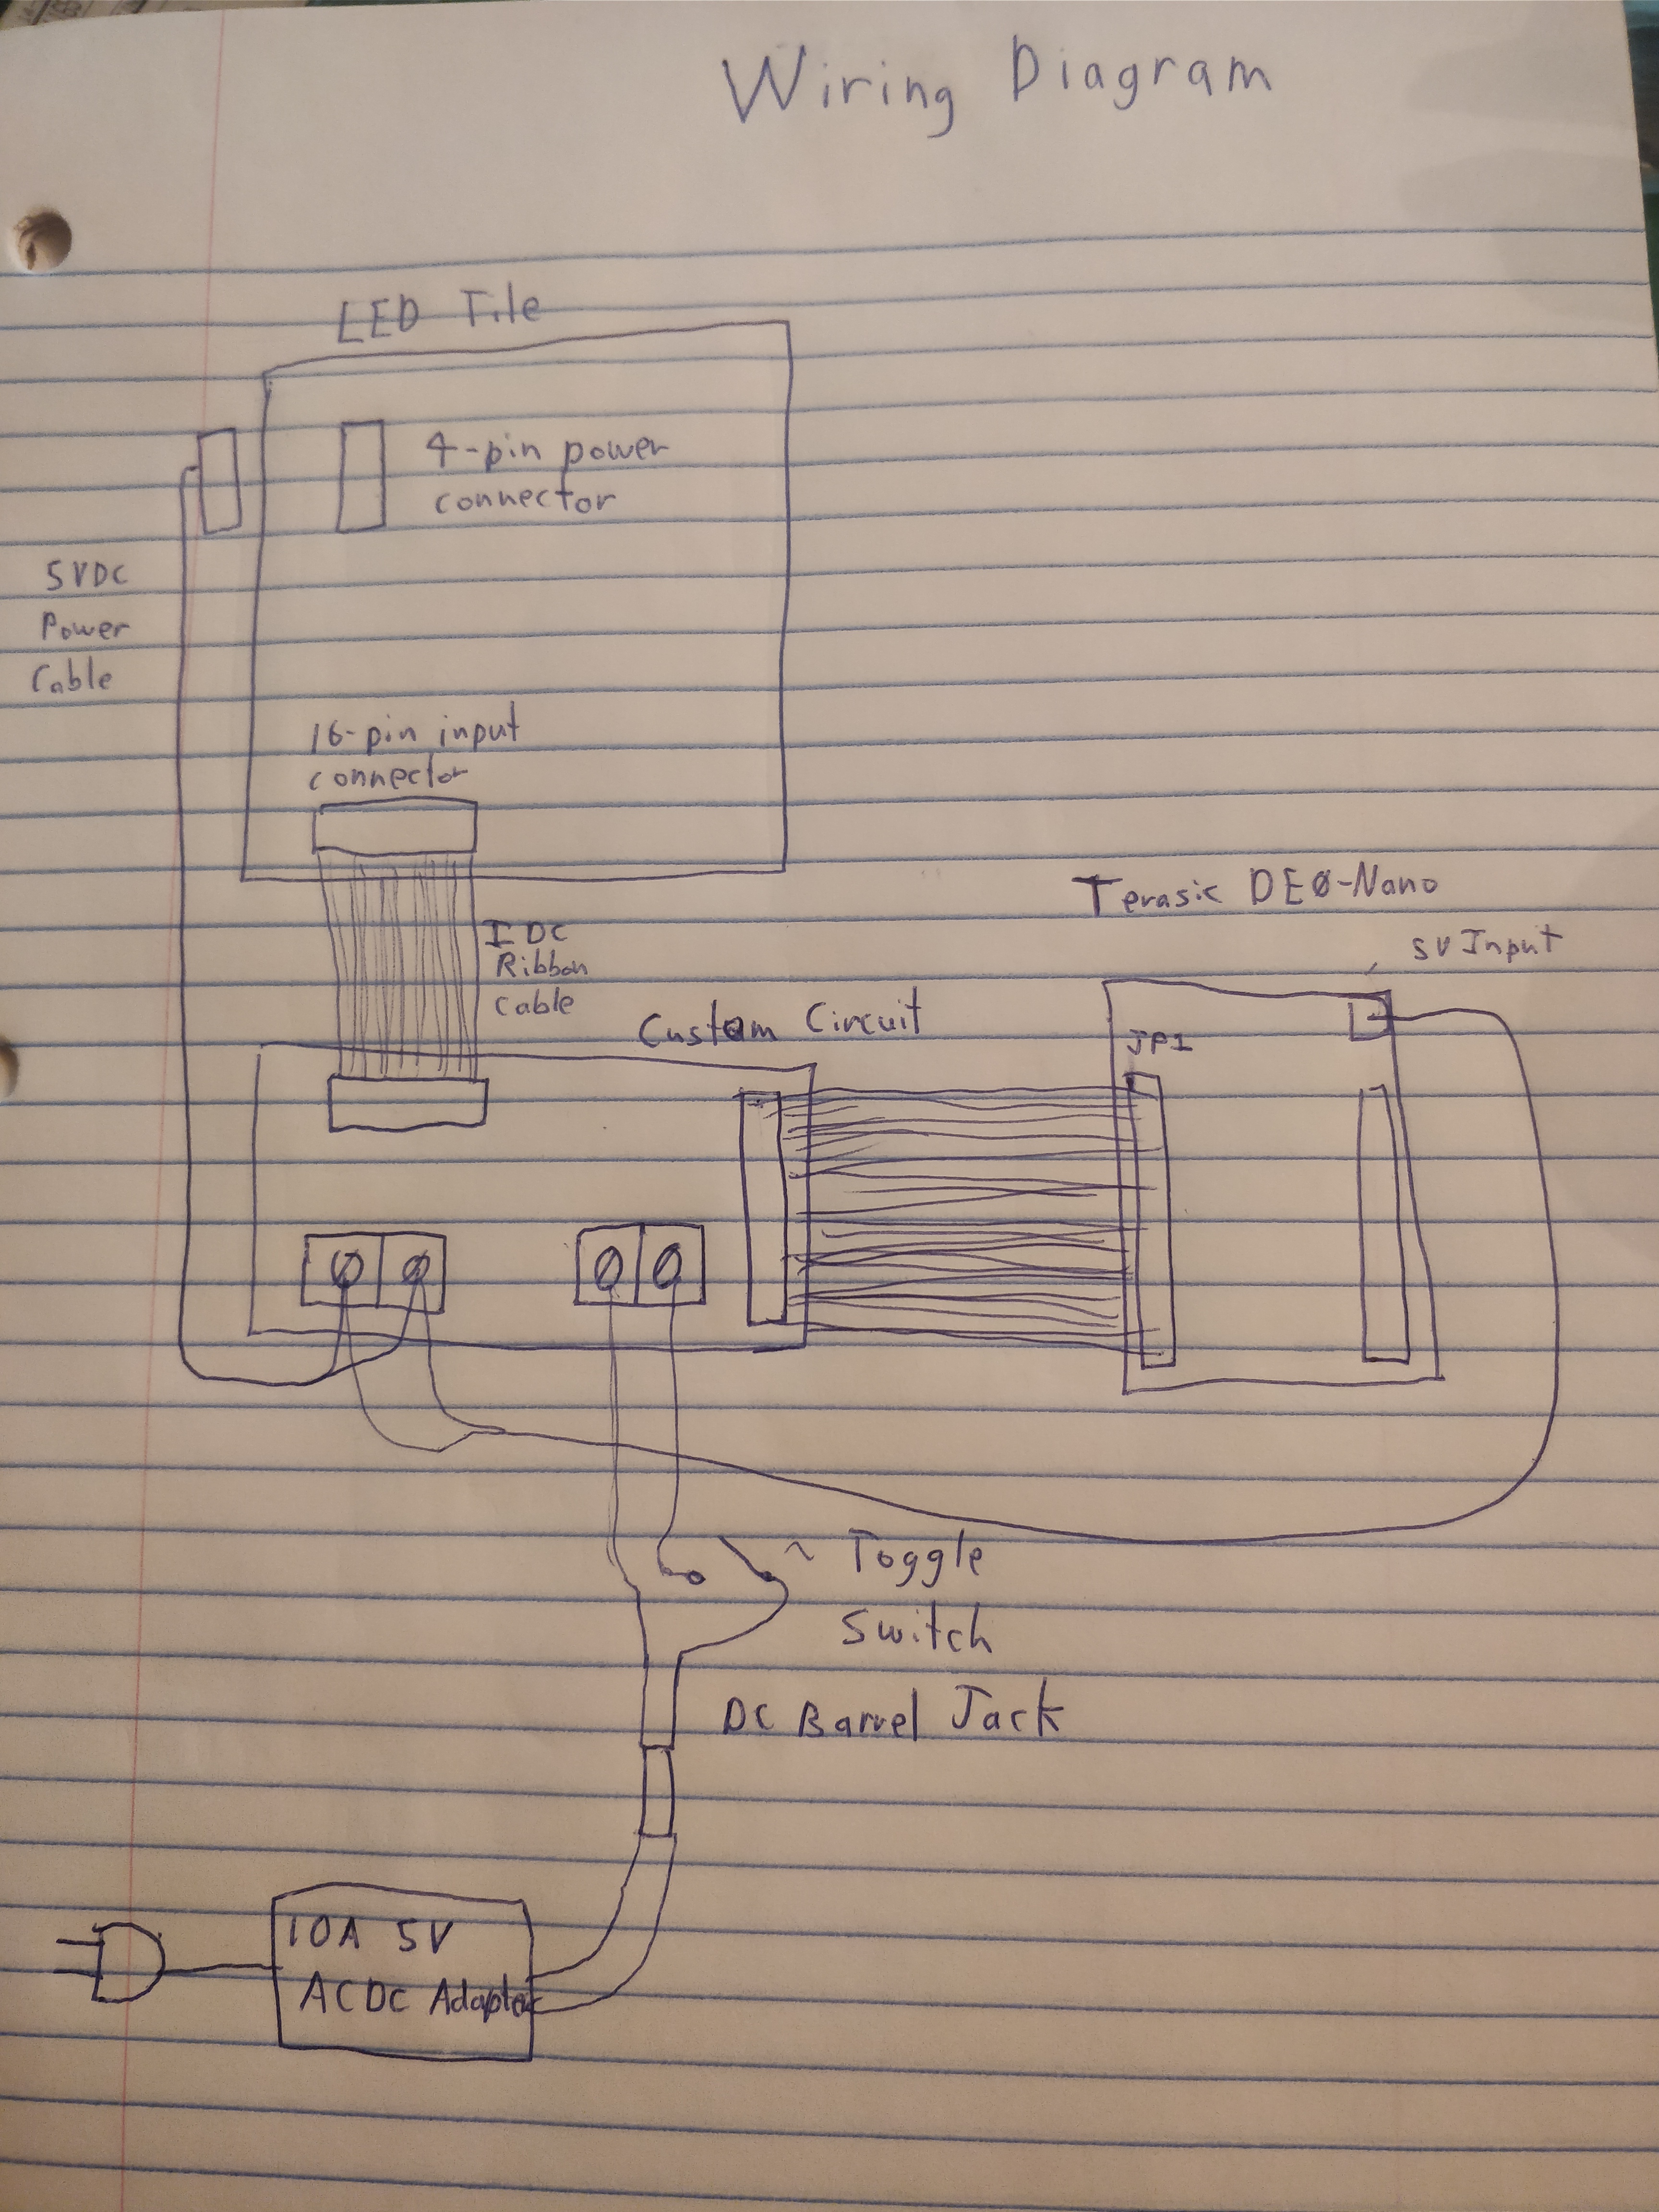 Wiring Diagram
LED Tile
4-pin power
connector
5VDC
Power
Cable
16-pin input
connector
IDC
Ribbon
Cable
Terasic DEØ-Nano
5V Input
Custom Circuit
JP1
Toggle
Switch
DC Barrel Jack
10A 5V
ACDC Adapter